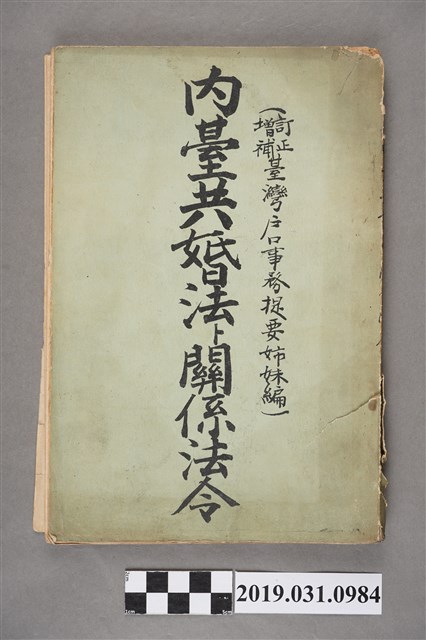 (訂正增補臺灣戶口事務提要姉妹編)
內臺共婚法ト關係法令
2cm
1cm
5cm
2019.031.0984